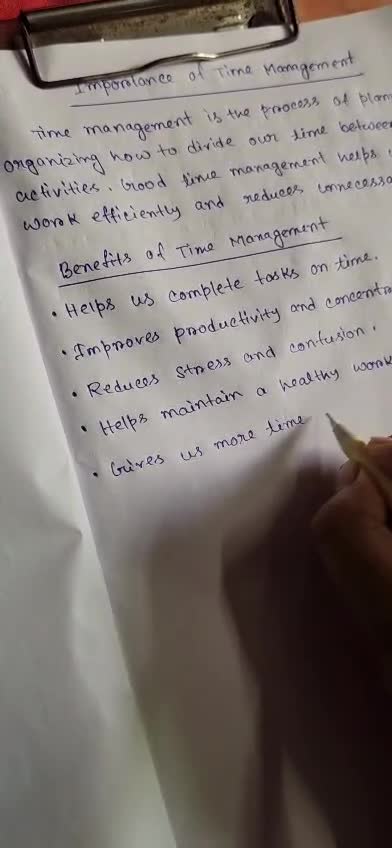 Importance of Time Management
Time management is the process of
organizing how to divide our time between
activities. Good time management helps
work efficiently and reduces
Benefits of Time Management
• Helps us complete tasks on time.
• Improves productivity and
• Reduces stress and confusion.
• Helps maintain a healthy work
• Gives us more time